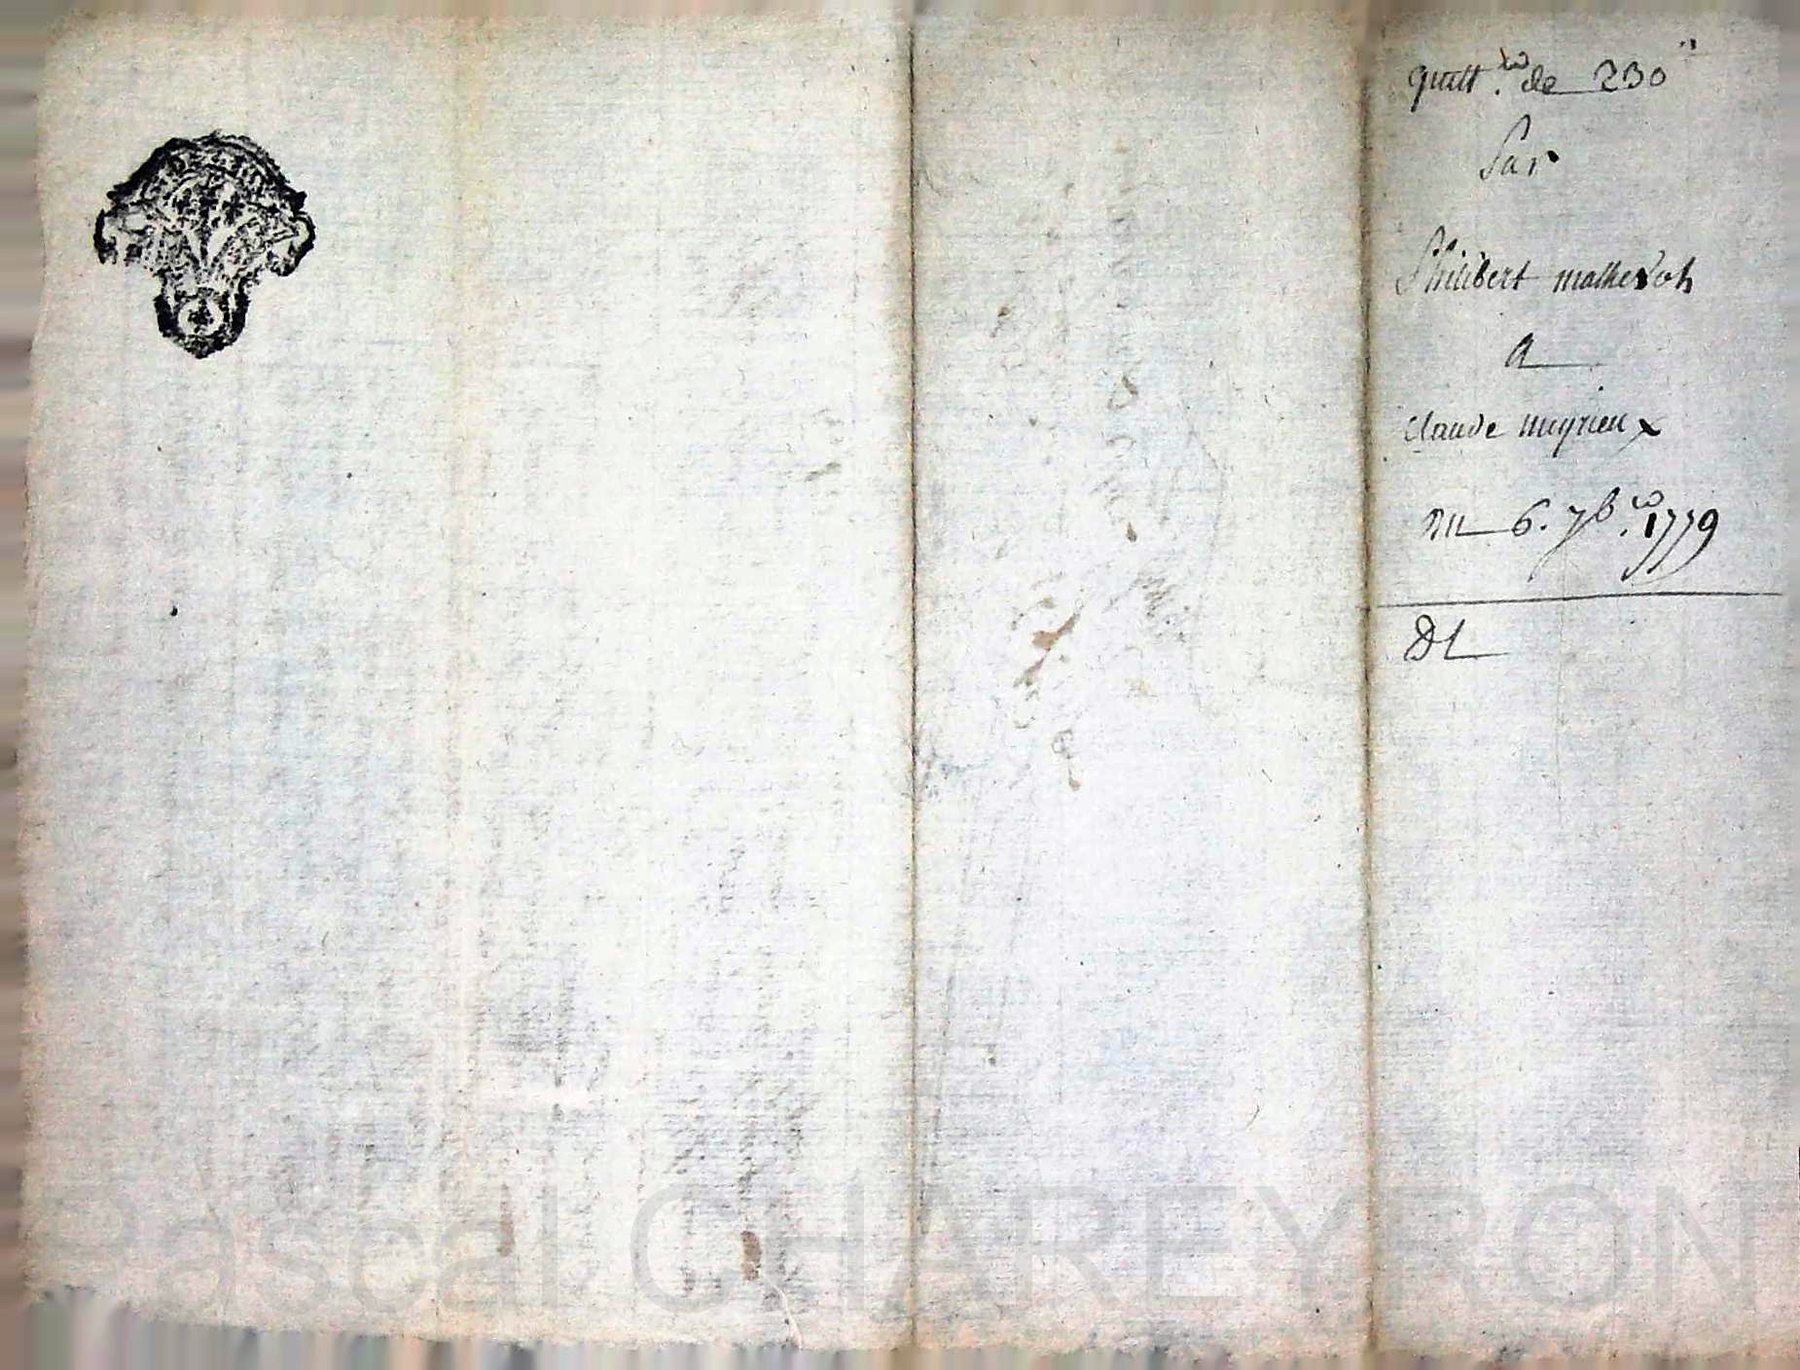 quitt.ce de 230ᵗᵗ
Par
Philibert matheron
a
claude meyrieux
Du 6. 7b.re 1779
DL
Pascal CHAREYRON